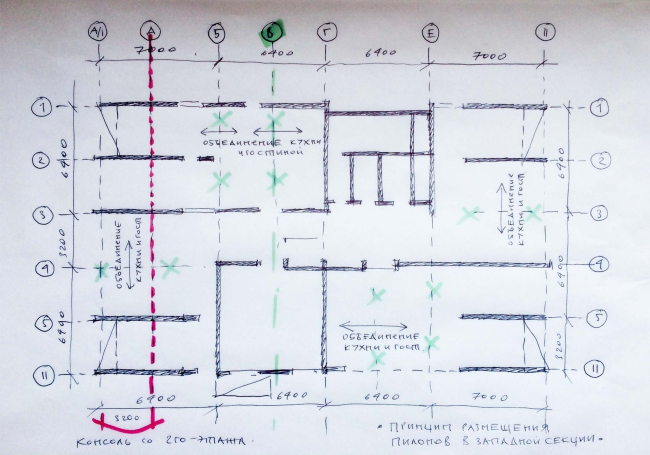 А/1 А Б В Г Е 11
7000 6400 6400 7000
1 1
ОБЪЕДИНЕНИЕ КУХНИ
И ГОСТИНОЙ
6400
2 2
6400
ОБЪЕДИНЕНИЕ
КУХНИ И ГОСТ.
3 3
ОБЪЕДИНЕНИЕ
КУХНИ И ГОСТ.
3200
4 4
6400
5 5
ОБЪЕДИНЕНИЕ
КУХНИ И ГОСТ.
6400
3200
11 11
6400 6400 6400 7000
3200
КОНСОЛЬ СО 2ГО-ЭТАЖА.
• ПРИНЦИП РАЗМЕЩЕНИЯ
ПИЛОНОВ В ЗАПАДНОЙ СЕКЦИИ.